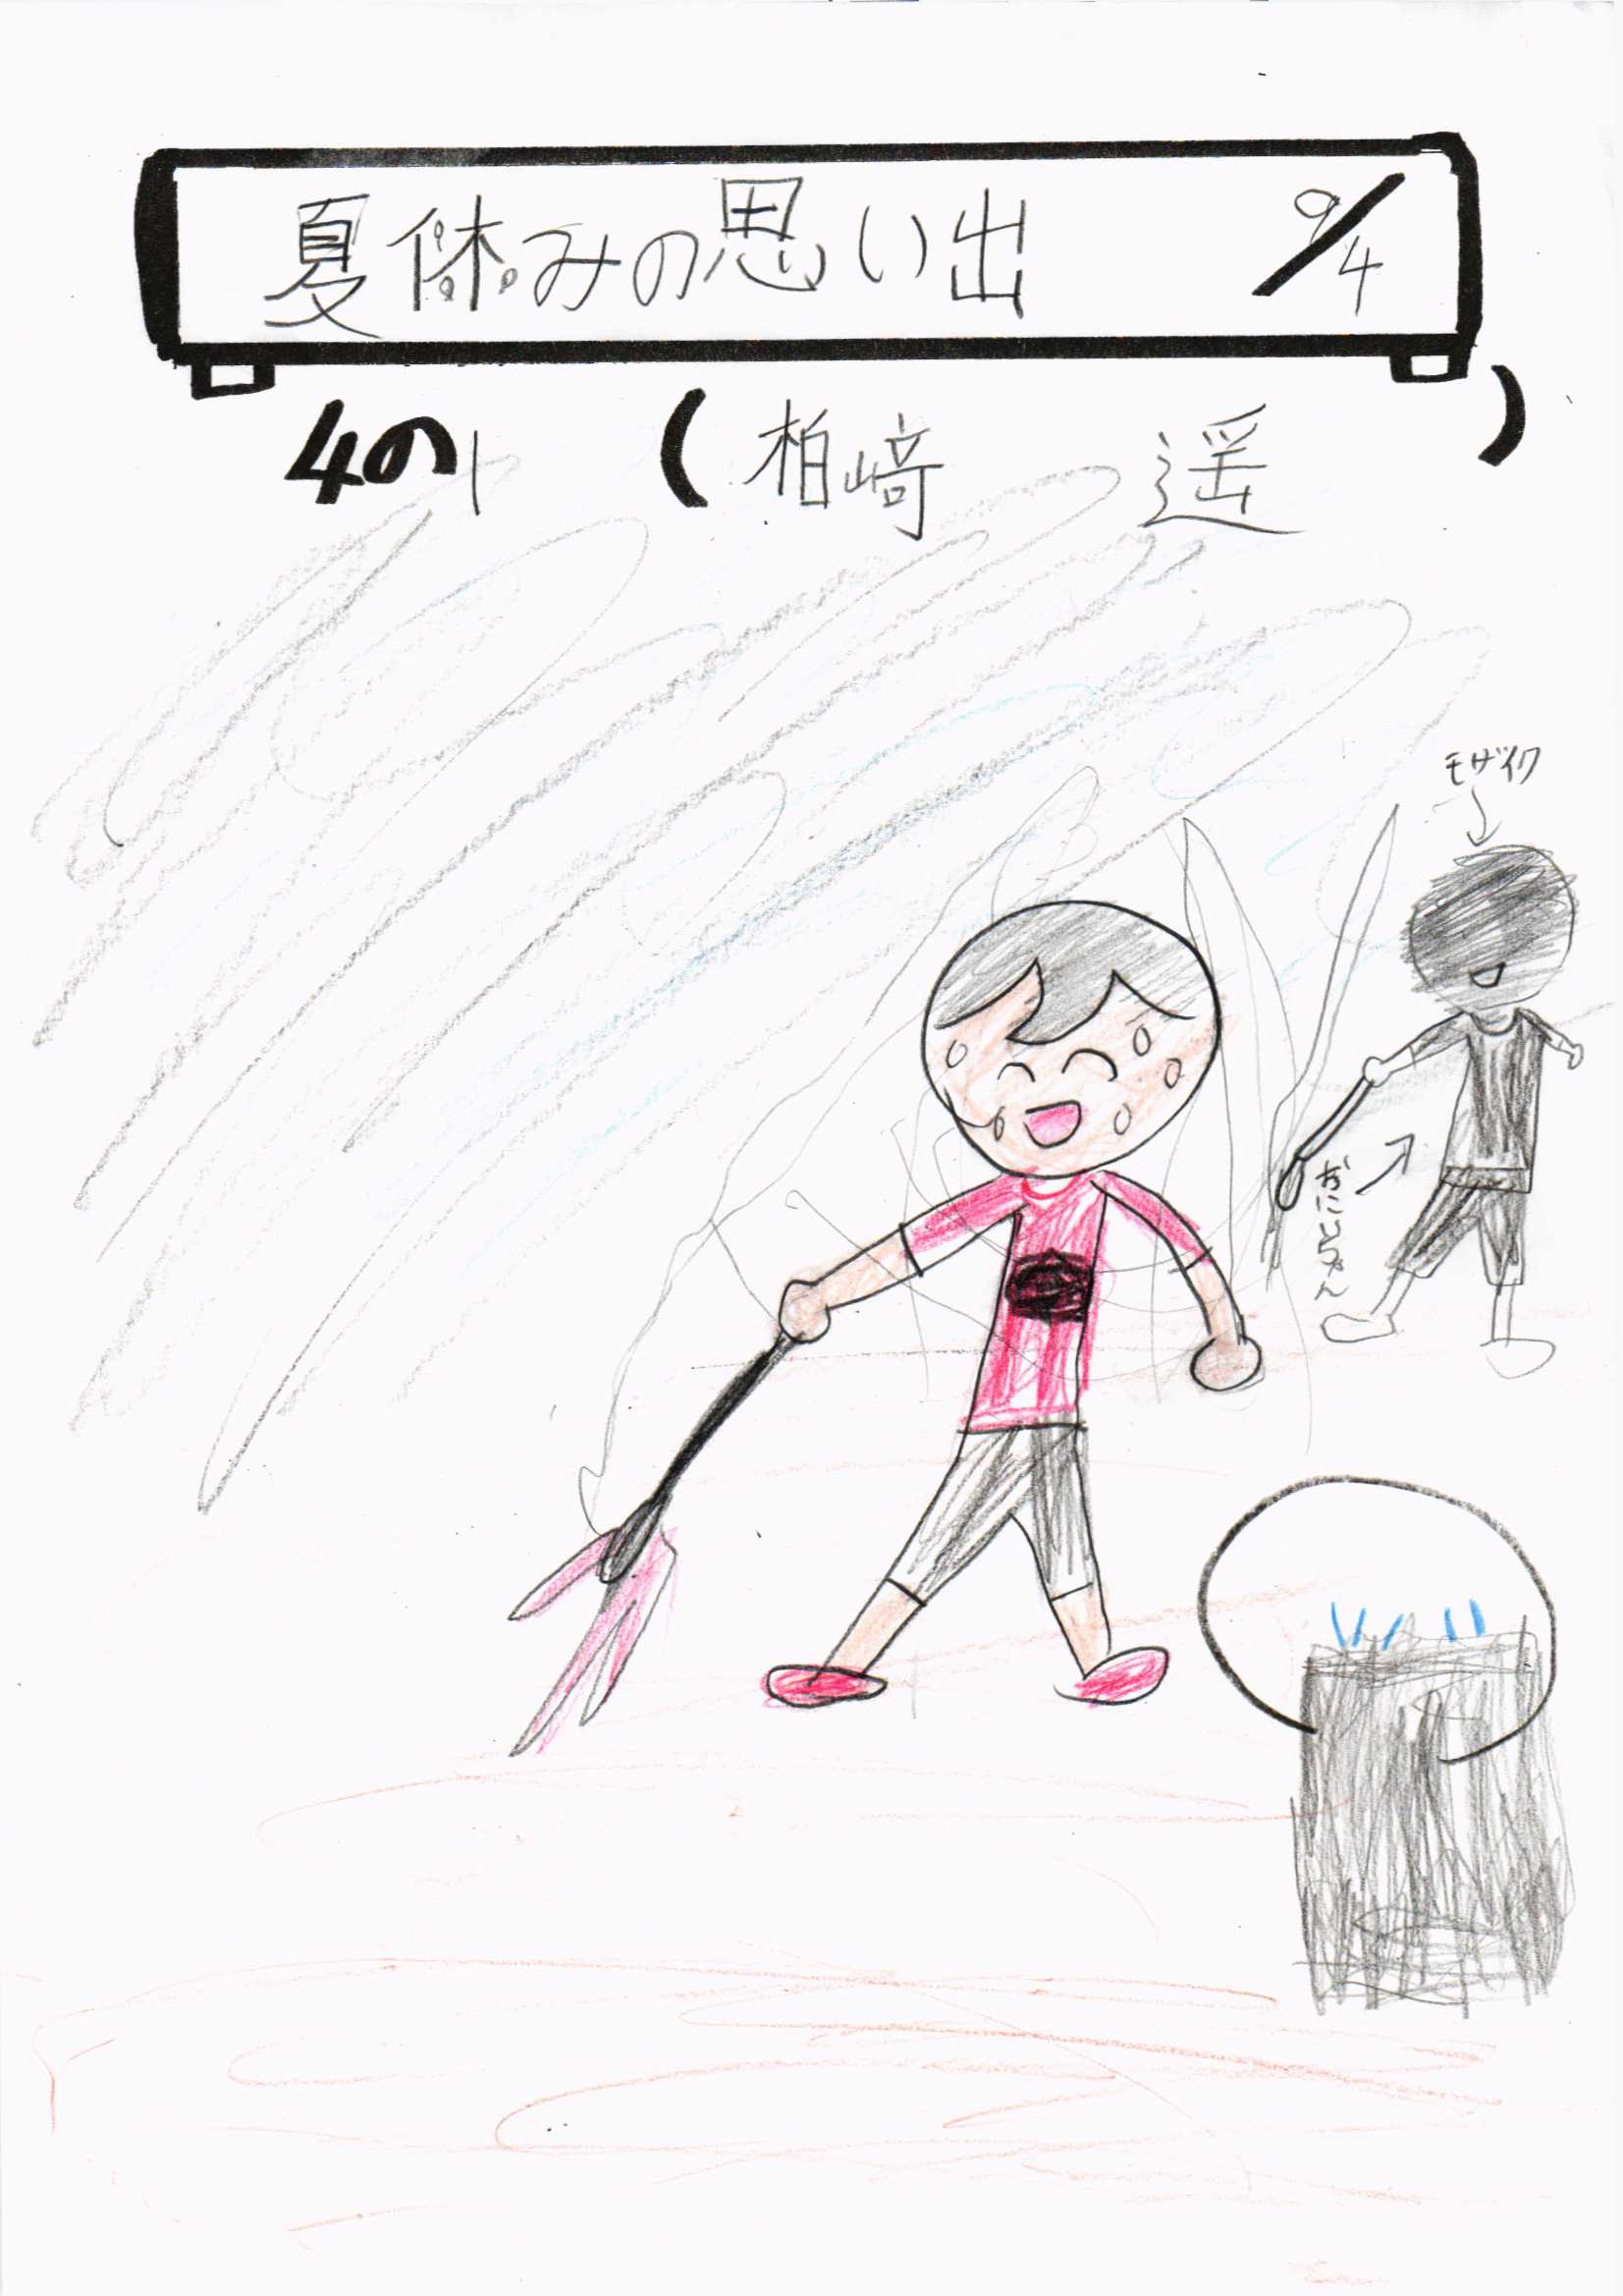 夏休みの思い出 9/4
4の1 (柏崎 遥)
モザイク
おにいちゃん